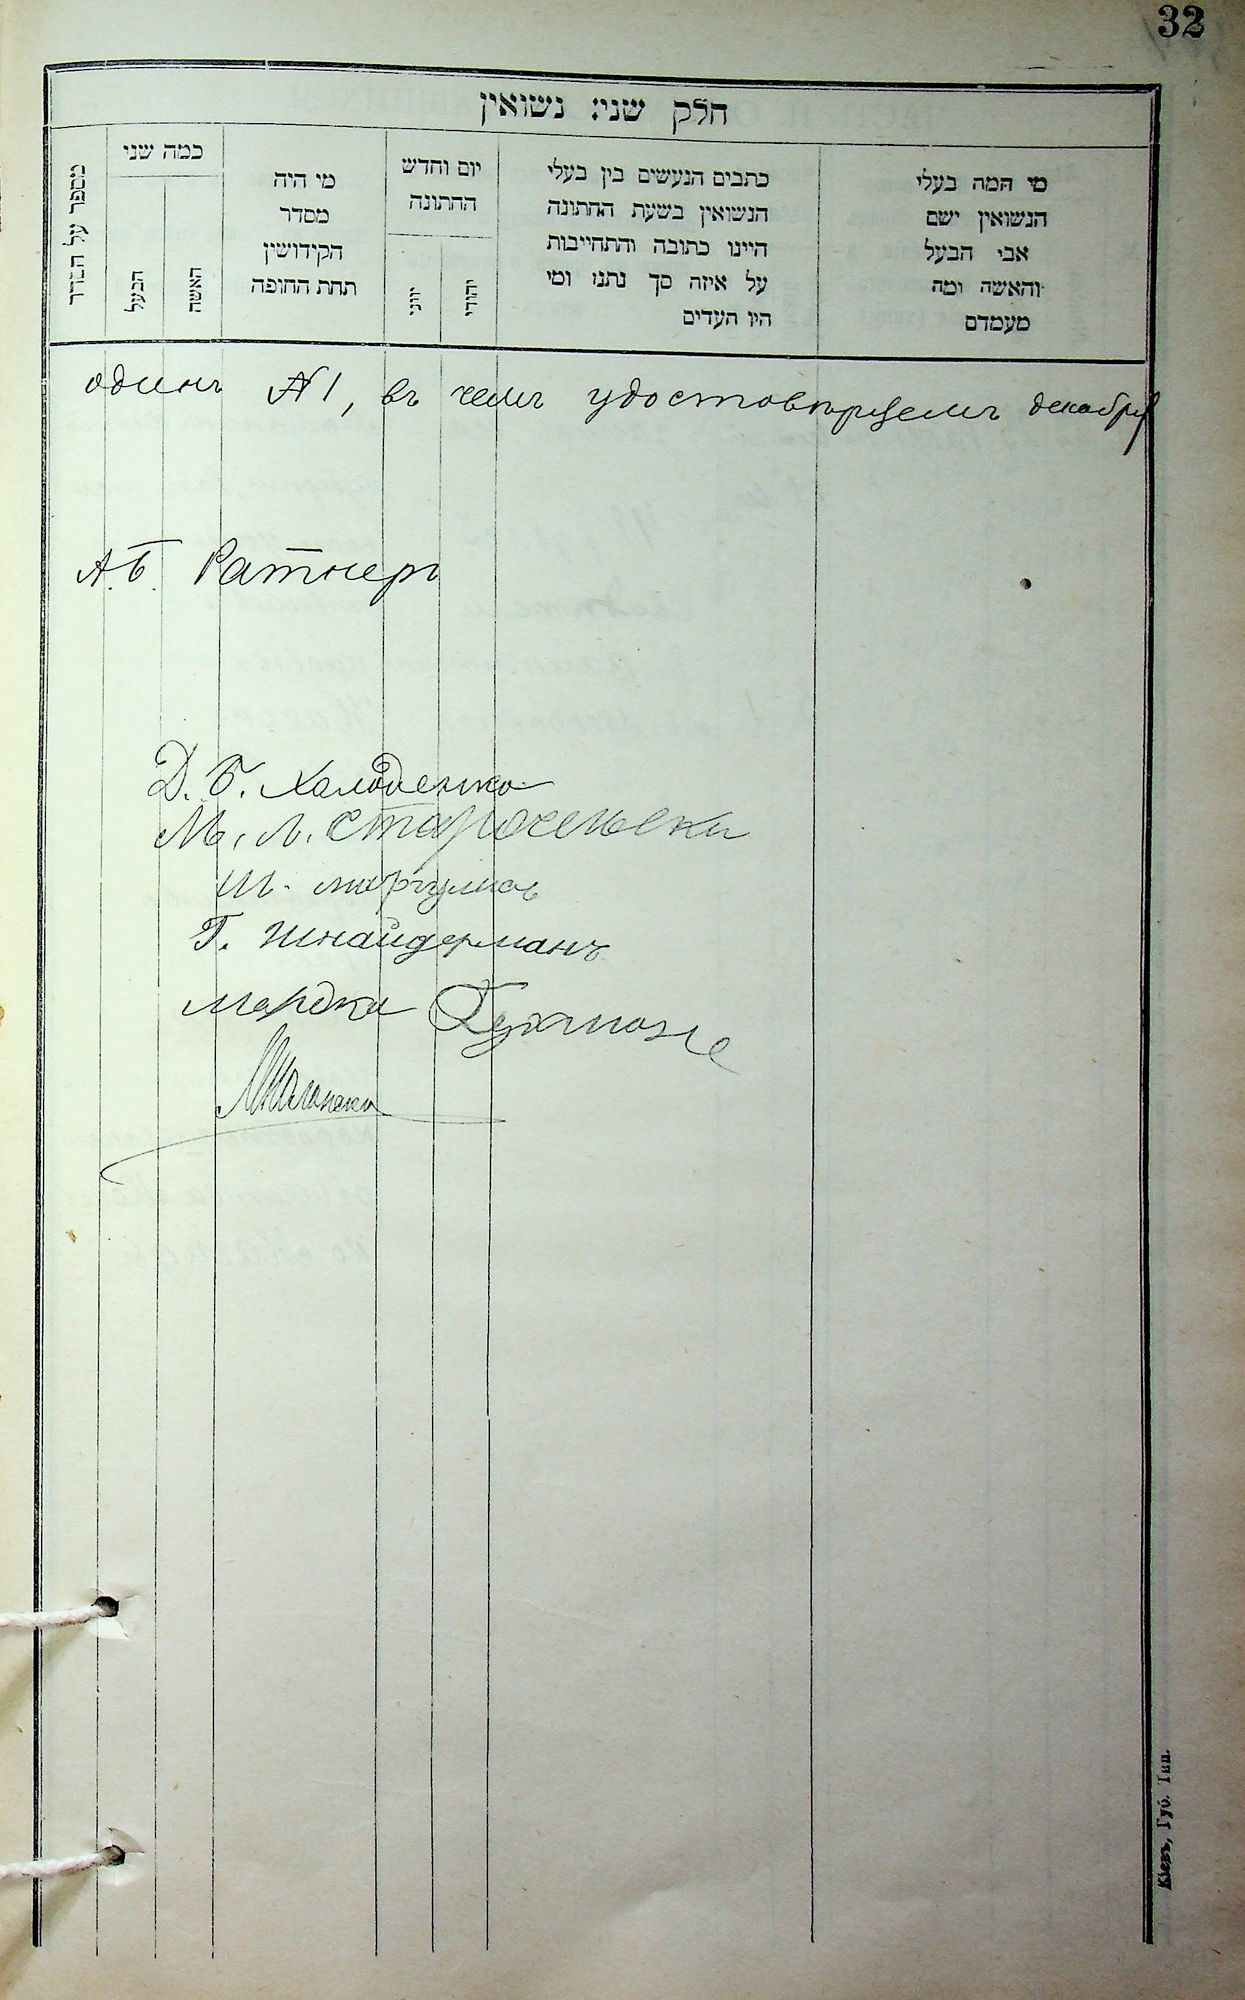 32
חלק שני: נשואין
מי המה בעלי הנשואין ושם אבי הבעל והאשה ומה מעמדם
כתבים הנעשים בין בעלי הנשואין בשעת החתונה היינו כתובה והתחייבות על איזה סך נתנו ומי היו העדים
יום וחדש החתונה
יהודי
יווני
מי היה מסדר הקידושין תחת החופה
כמה שני
האשה
הבעל
מספר על הסדר
одинъ №1, въ чемъ удостовѣряемъ декабря
А.Б. Ратнеръ
Д. Б. Халоденко
М. Л.
Ш. Маргулисъ
Г. Шнайдерманъ
Мордко
Кіевъ, Губ. Тип.